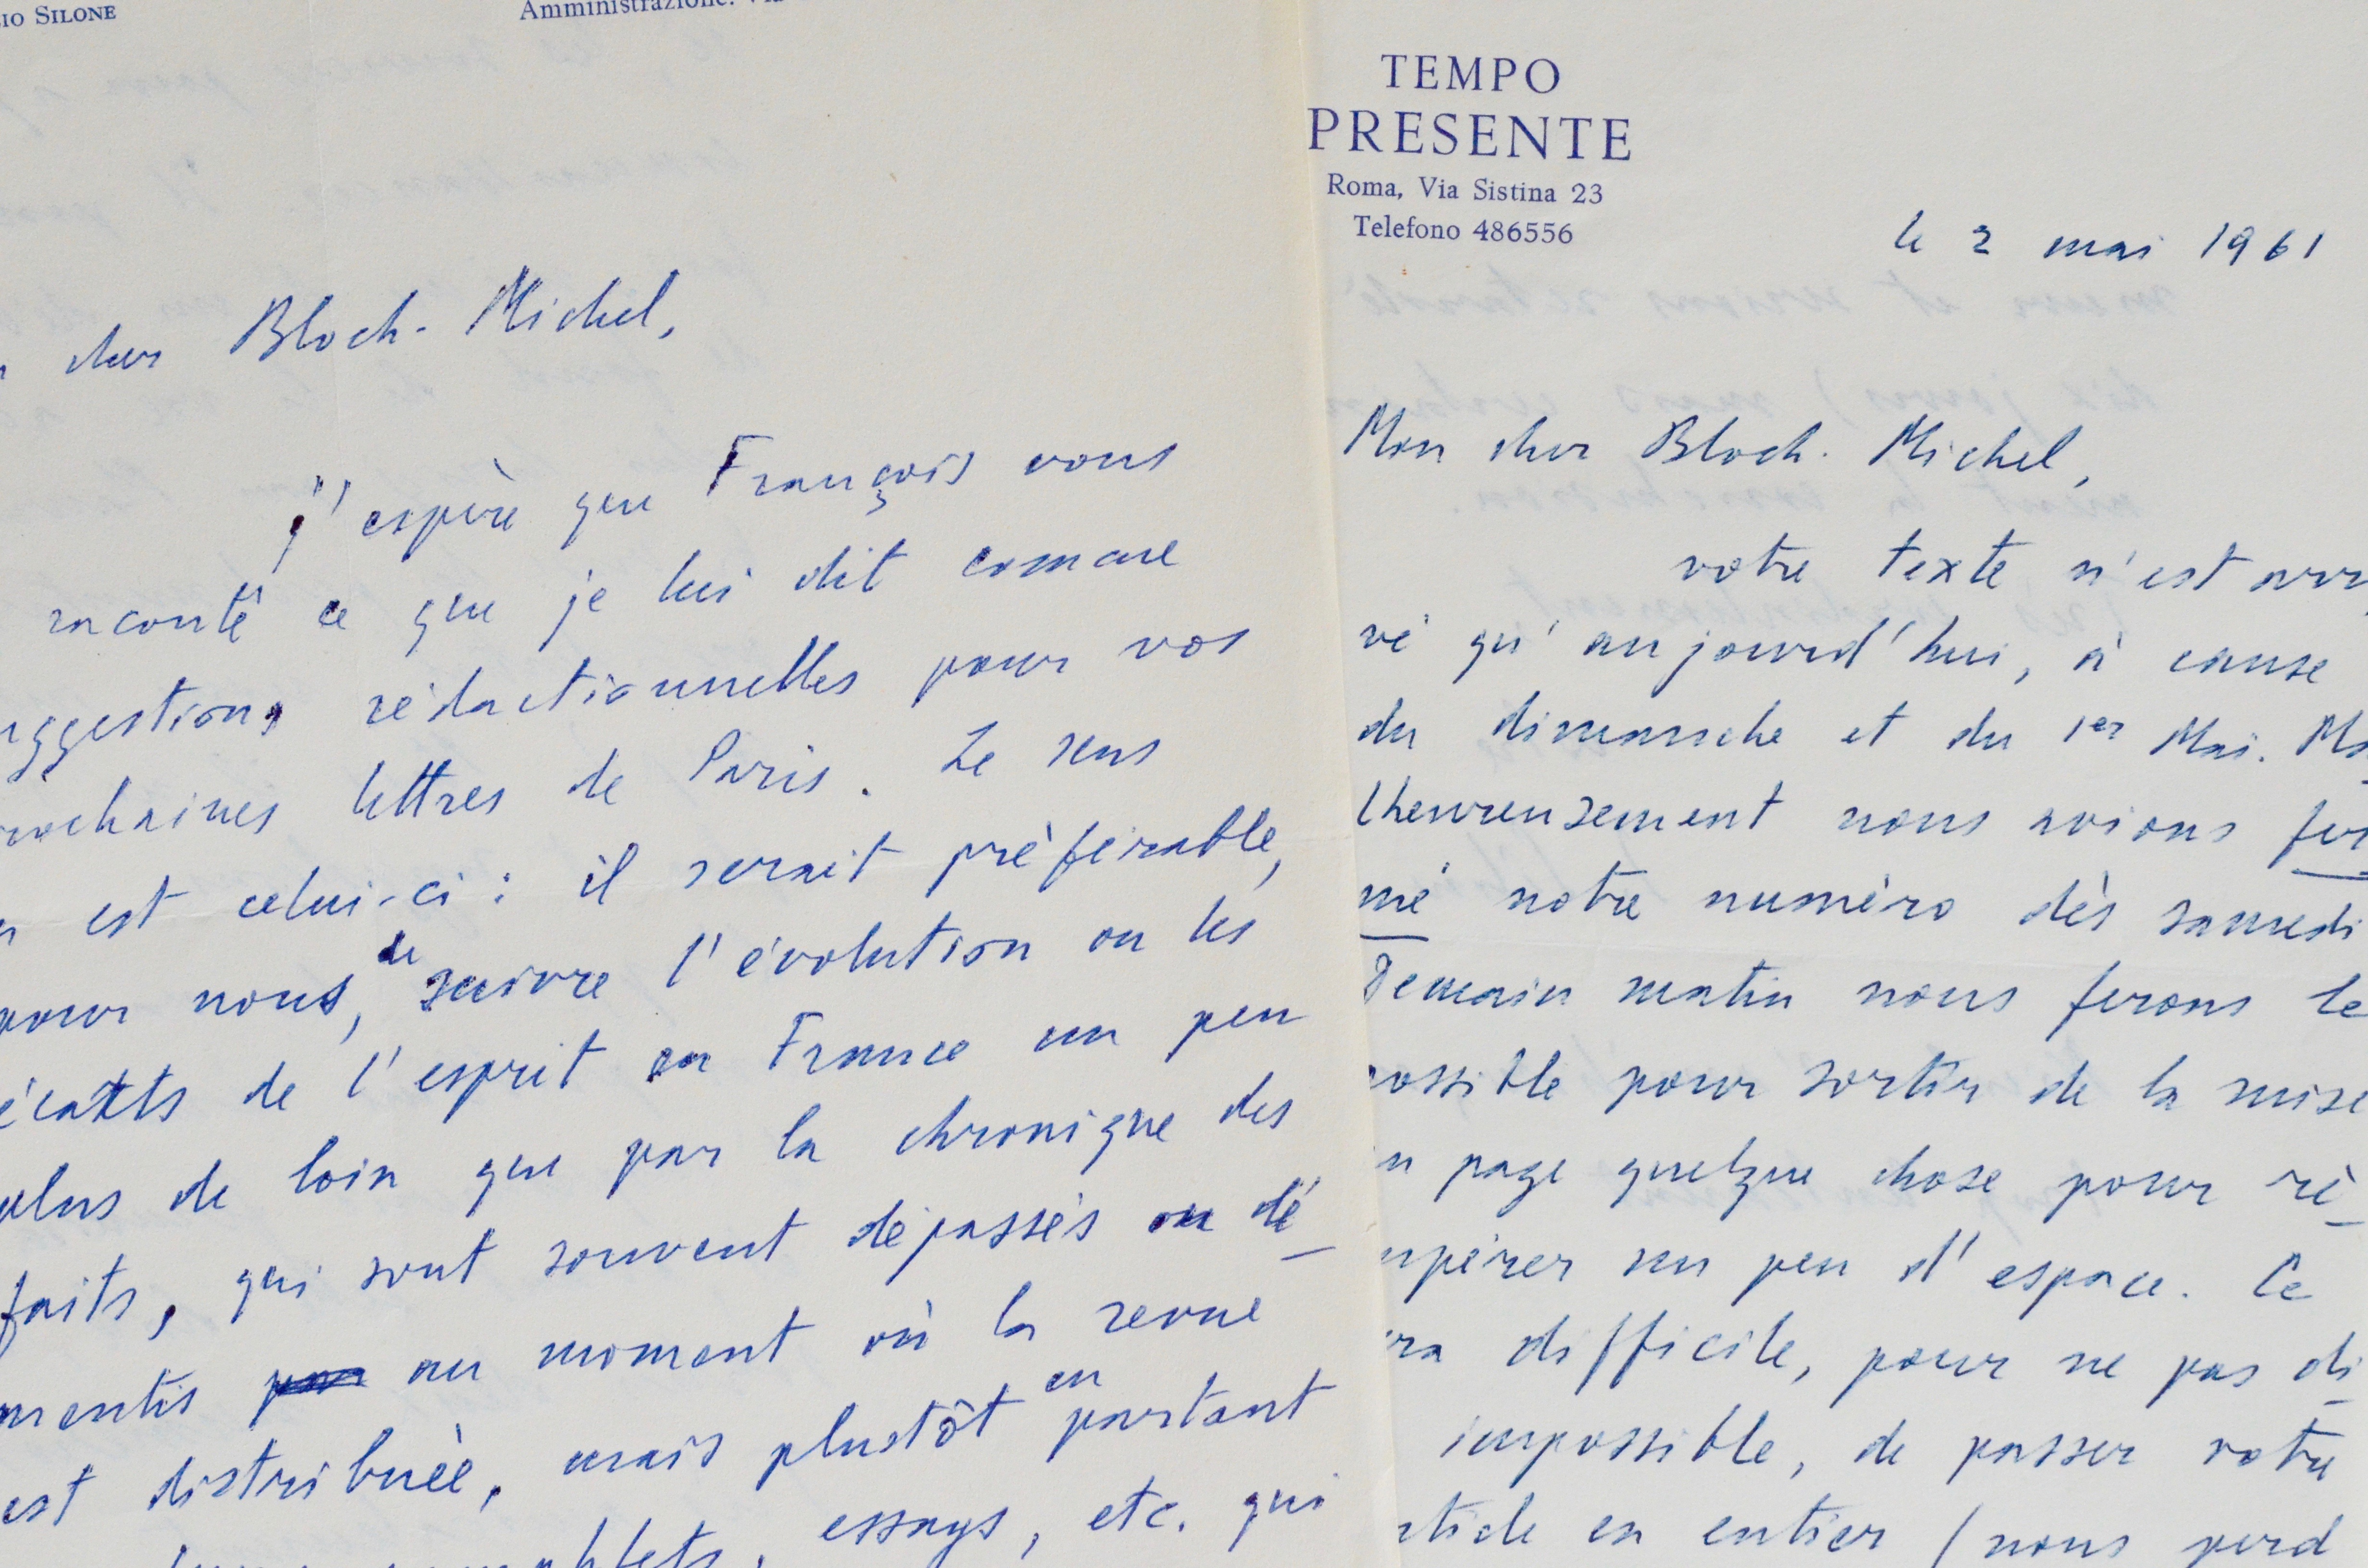 IO SILONE
Amministrazione:
cher Bloch-Michel,
j'espère que François vous
raconté ce que je lui dit comme
uggestions rédactionnelles pour vos
rochaines lettres de Paris. Le sens
est celui-ci: il serait préférable,
pour nous, de suivre l'évolution ou les
écarts de l'esprit en France un peu
plus de loin que par la chronique des
faits, qui sont souvent dépassés ou dé
mentis au moment où la revue
est distribuée, mais plustôt en partant
essays, etc. qui
TEMPO
PRESENTE
Roma, Via Sistina 23
Telefono 486556
le 2 mai 1961
Mon cher Bloch-Michel,
votre texte n'est arri
vé qu'aujourd'hui, à cause
du dimanche et du 1er Mai. Ma
lheureusement nous avions fer
mé notre numéro dès samedi
Demain matin nous ferons le
possible pour sortir de la mise
n page quelque chose pour ré
upérer un peu d'espace. Ce
ra difficile, pour ne pas di
impossible, de passer votre
rticle en entier (nous perd